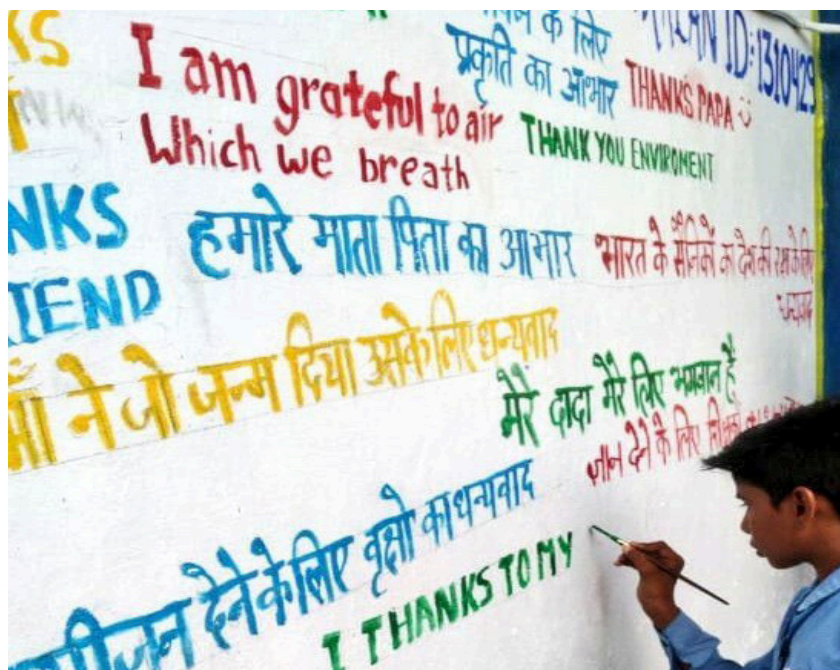 I am grateful to air
Which we breath
के लिए
प्रकृति का आभार
THANKS PAPA
ID:1310429
THANK YOU ENVIROMENT
NKS
IEND
हमारे माता पिता का आभार
भारत के सैनिकों का देश की रक्षा के लिए
धन्यवाद
माँ ने जो जन्म दिया उसके लिए धन्यवाद
मेरे दादा मेरे लिए भगवान हैं
ज्ञान देने के लिए शिक्षकों का
देने के लिए वृक्षो का धन्यवाद
I THANKS TO MY